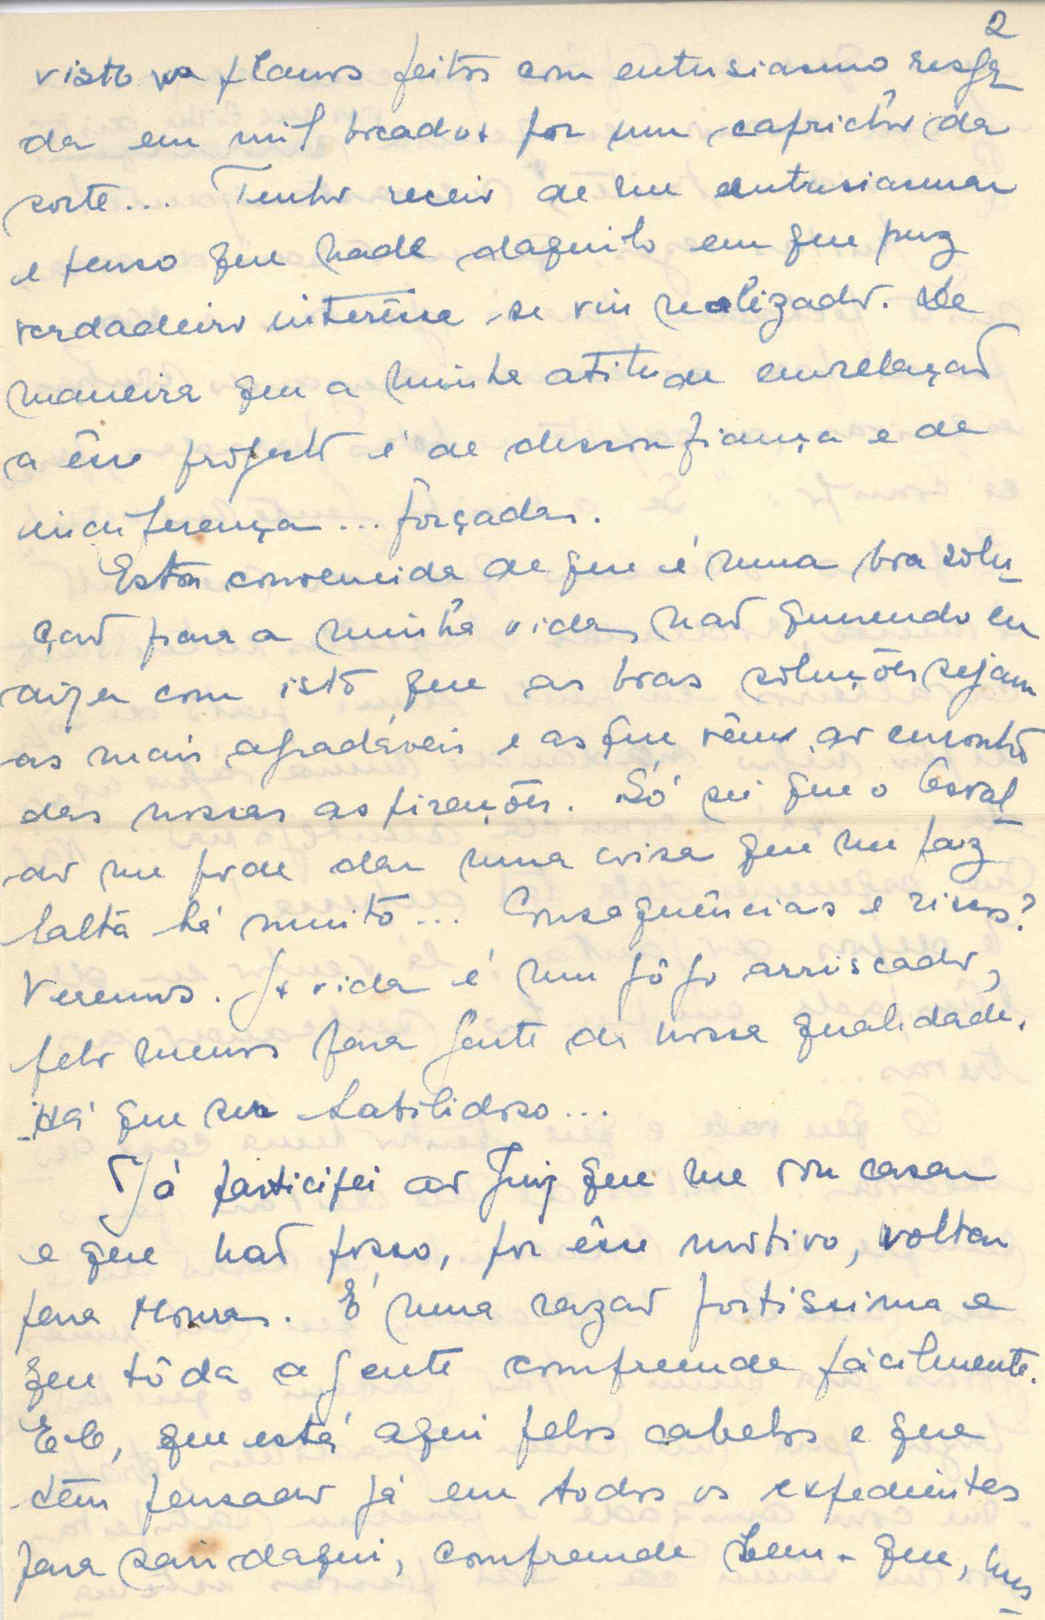 2
visto os planos feitos com entusiasmo
da em mil bocados por um capricho da
sorte... Tenho receio de me entusiasmar
e penso que nada daquilo em que puz
verdadeiro interêsse se viu realizado. De
maneira que a minha atitude em relação
a êsse projecto é de desconfiança e de
indiferença... forçadas.
Estou convencida de que é uma boa solu_
ção para a minha vida, não querendo eu
dizer com isto que as boas soluções sejam
as mais agradáveis e as que vêm ao encontro
das nossas aspirações. Só sei que o
do me pode dar uma coisa que me faz
falta há muito... Consequências e riscos?
Veremos. A vida é um jôgo arriscado,
pelo menos para gente da nossa qualidade.
Há que ser habilidoso...
Já participei ao Juiz que me vou casar
e que não posso, por êsse motivo, voltar
para Moura. É uma razão fortissima e
que tôda a gente compreende fàcilmente.
Ele, que está aqui pelos cabelos e que
têm pensado já em todos os expedientes
para sair daqui, compreende bem que,